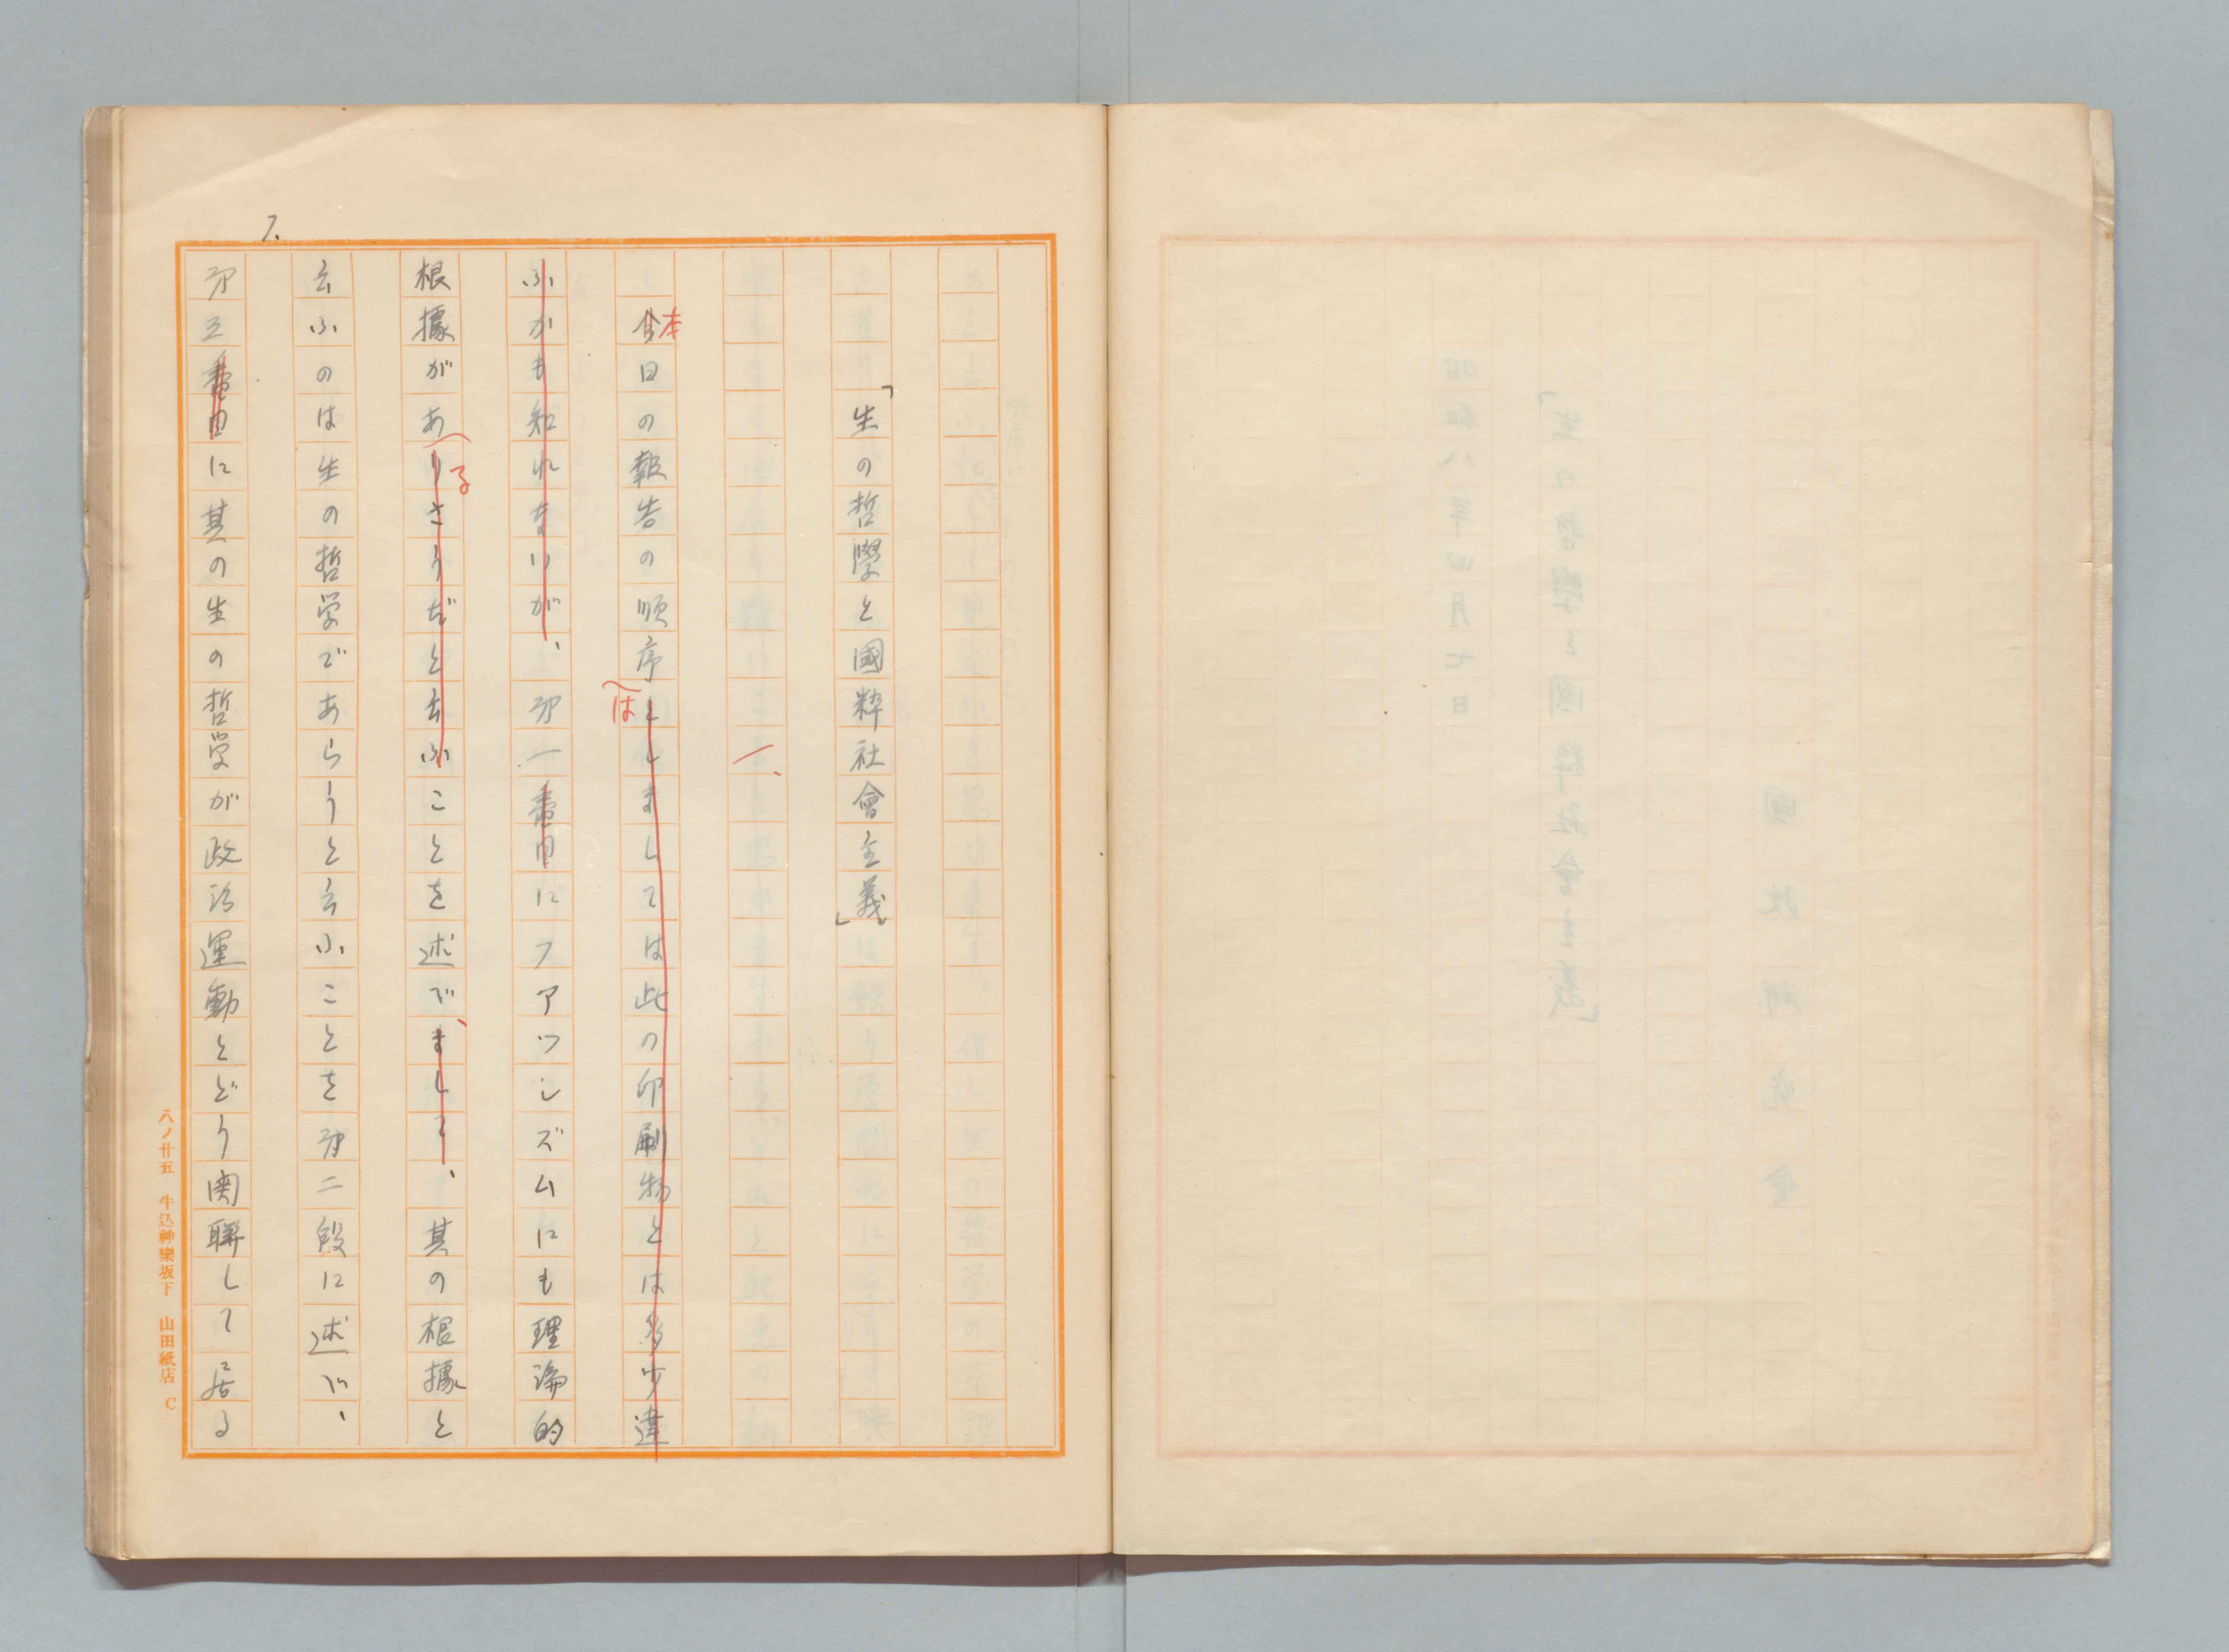 「生の哲學と國粹社會主義」
一、
今本日の報告の順序としましては此の印刷物とは多少違
は
ふかも知れないが、第一番目にファッシズムにも理論的
根據がありさうだと云ふことを述べまして、其の根據と
る
云ふのは生の哲学であらうと云ふことを第二段に述べ、
第三番目に其の生の哲学が政治運動とどう関聯して居る
1.
八ノ廿五 牛込神樂坂下 山田紙店 C